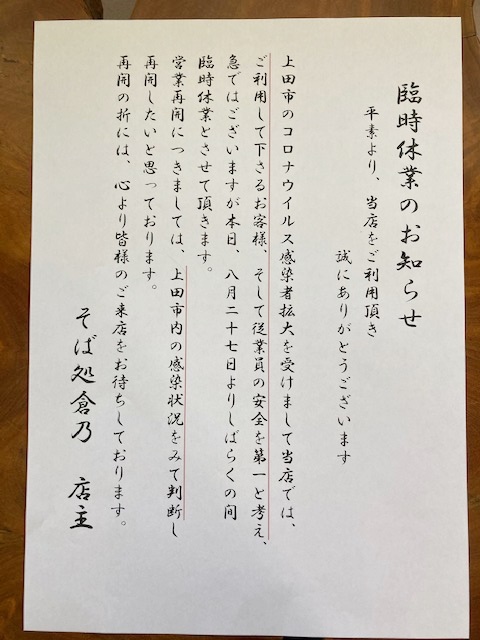 臨時休業のお知らせ
平素より、当店をご利用頂き
誠にありがとうございます
上田市のコロナウイルス感染者拡大を受けまして当店では、
ご利用して下さるお客様、そして従業員の安全を第一と考え、
急ではございますが本日、八月二十七日よりしばらくの間
臨時休業とさせて頂きます。
営業再開につきましては、上田市内の感染状況をみて判断し
再開したいと思っております。
再開の折には、心より皆様のご来店をお待ちしております。
そば処倉乃 店主